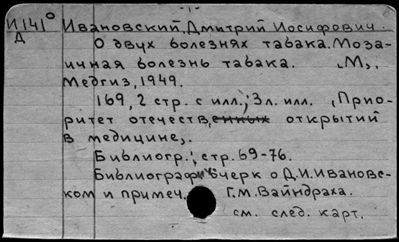 И141° Ивановский, Дмитрий Иосифович.
Д
О двух болезнях табака. Моза-
ичная болезнь табака. „М„
Медгиз, 1949.
169, 2 стр. с илл.; 3л. илл. „Прио-
ритет отечественных открытий
в медицине„.
Библиогр.: стр. 69-76.
Библиограф. очерк о Д.И.Ивановс-
ком и примеч. Г.М.Вайндраха.
см. след. карт.